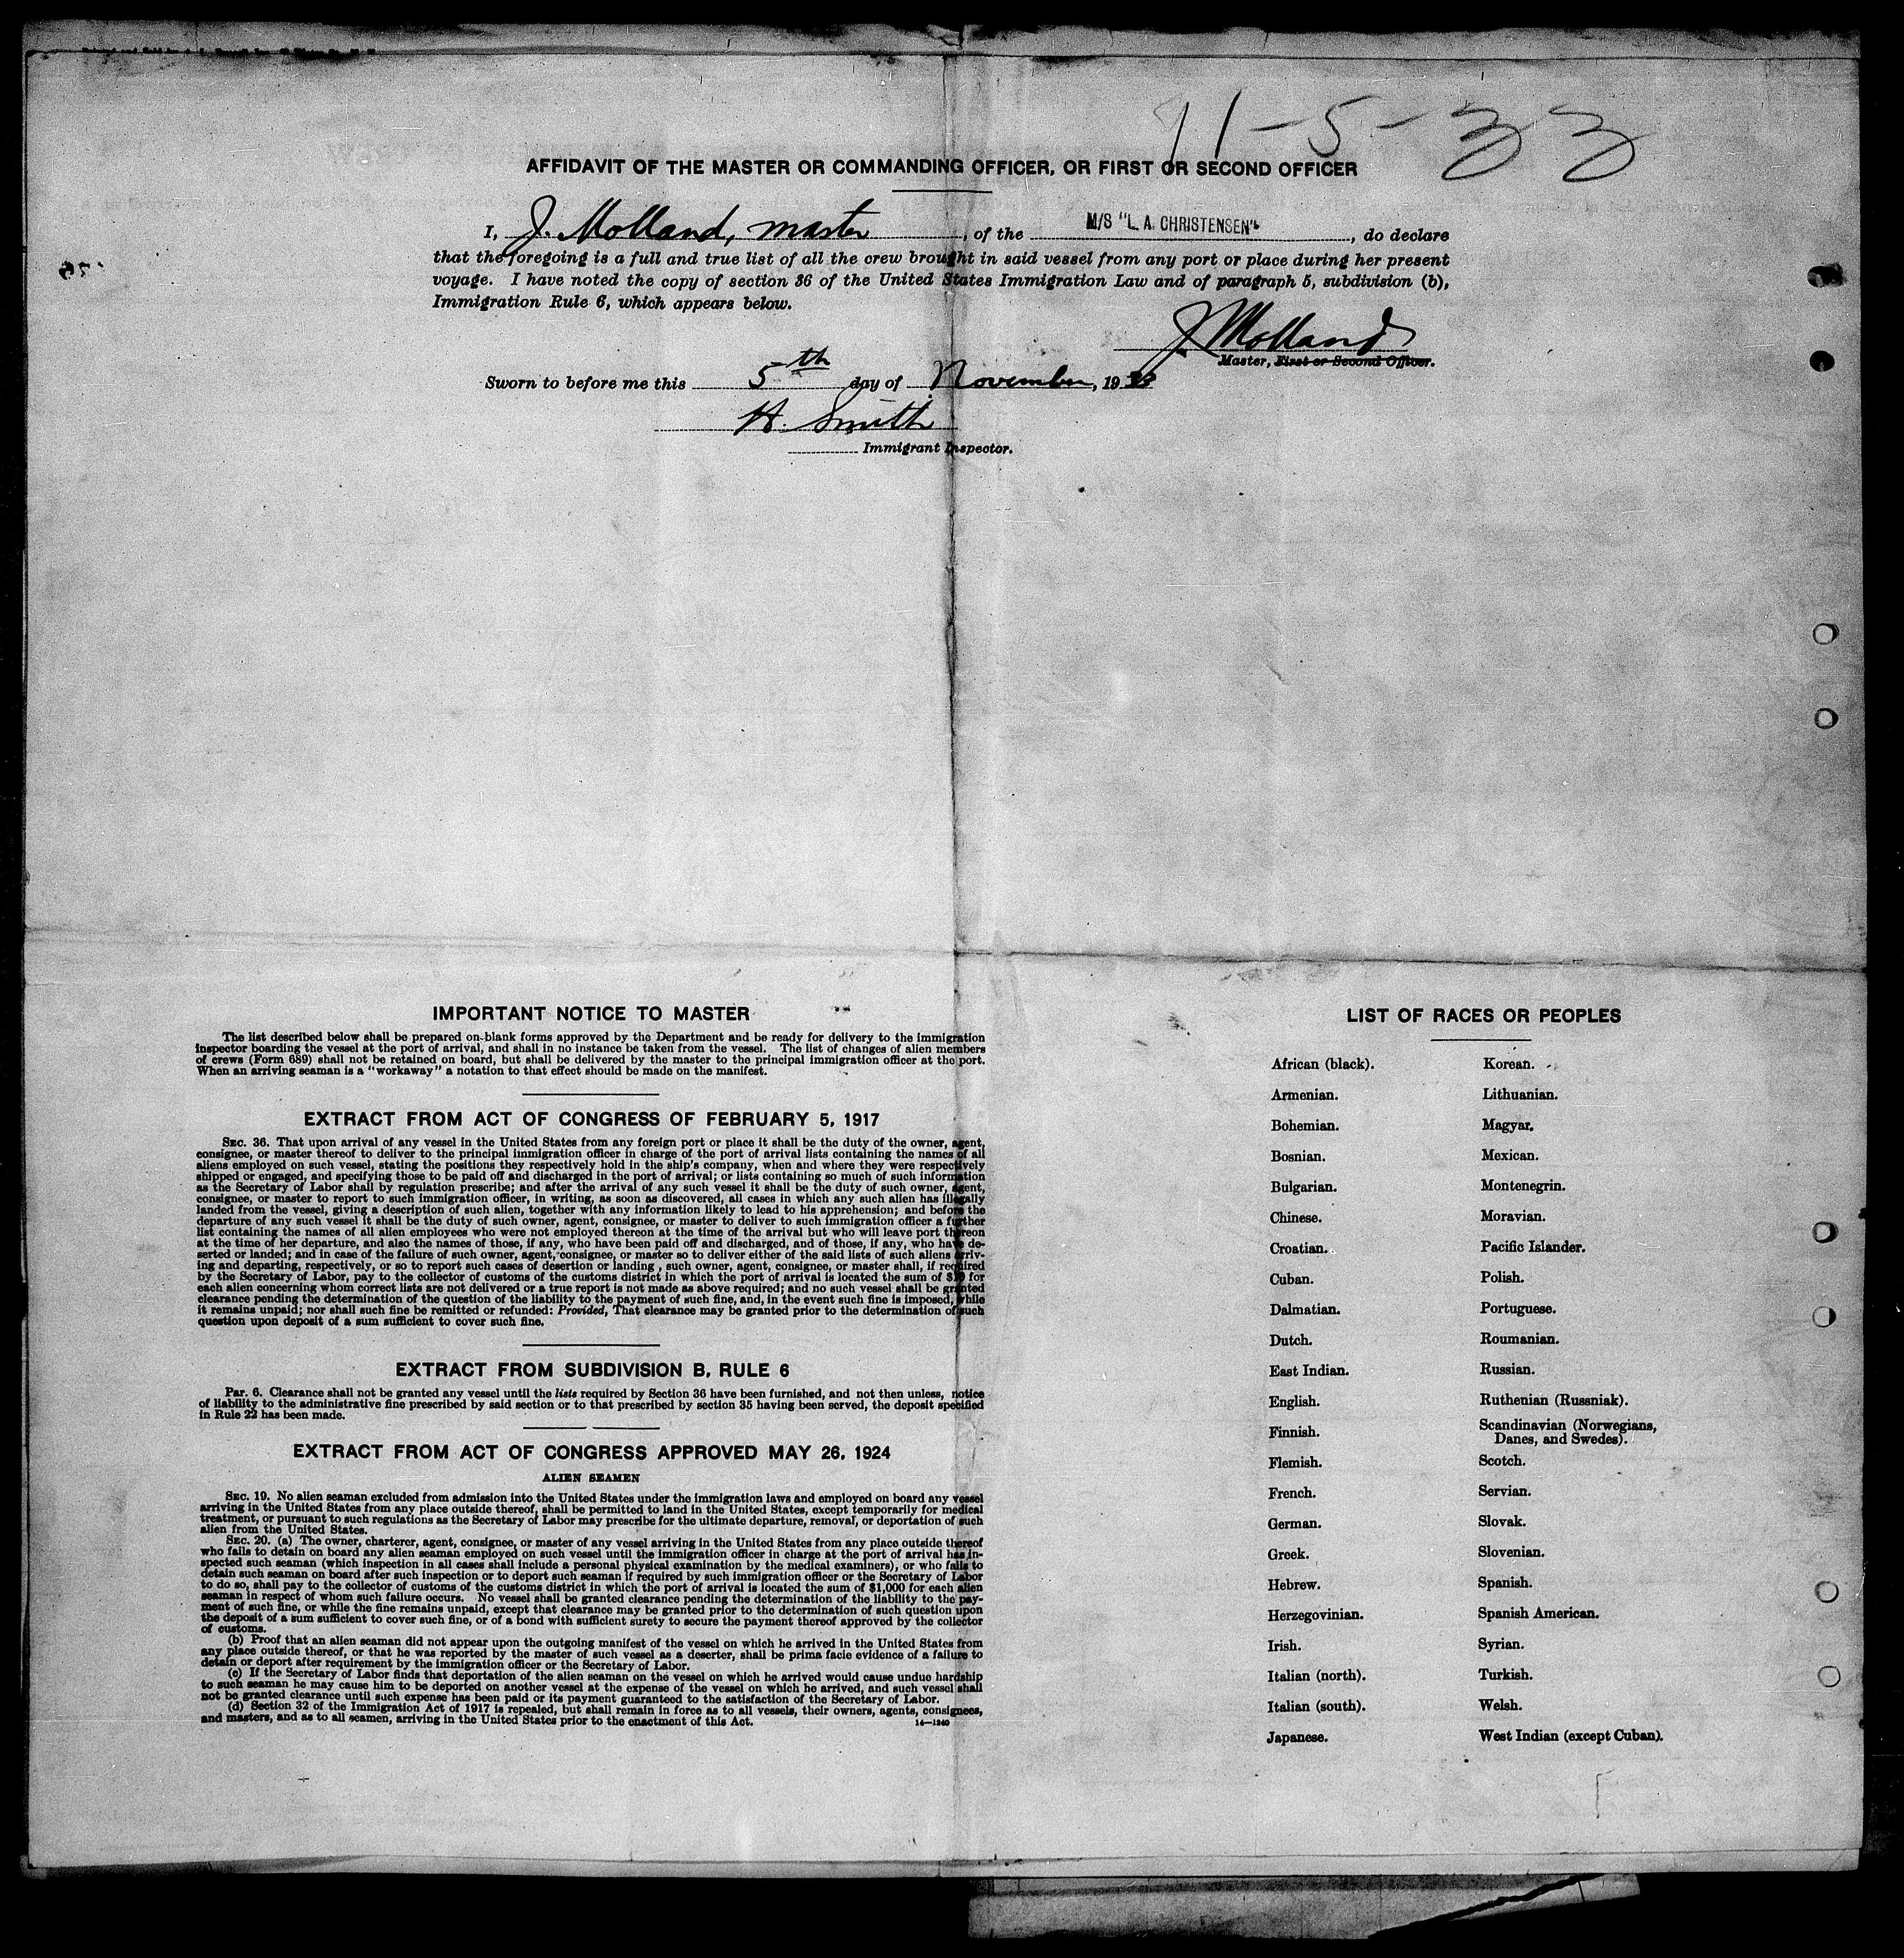 11-5-33
AFFIDAVIT OF THE MASTER OR COMMANDING OFFICER, OR FIRST OR SECOND OFFICER
I, J. Molland, master, of the M/S "L. A. CHRISTENSEN", do declare
that the foregoing is a full and true list of all the crew brought in said vessel from any port or place during her present
voyage. I have noted the copy of section 36 of the United States Immigration Law and of paragraph 5, subdivision (b),
Immigration Rule 6, which appears below.
J Molland
Master, First or Second Officer.
Sworn to before me this 5th day of November, 1933
H. Smith
Immigrant Inspector.
IMPORTANT NOTICE TO MASTER
The list described below shall be prepared on blank forms approved by the Department and be ready for delivery to the immigration
inspector boarding the vessel at the port of arrival, and shall in no instance be taken from the vessel. The list of changes of alien members
of crews (Form 689) shall not be retained on board, but shall be delivered by the master to the principal immigration officer at the port.
When an arriving seaman is a "workaway" a notation to that effect should be made on the manifest.
EXTRACT FROM ACT OF CONGRESS OF FEBRUARY 5, 1917
SEC. 36. That upon arrival of any vessel in the United States from any foreign port or place it shall be the duty of the owner, agent,
consignee, or master thereof to deliver to the principal immigration officer in charge of the port of arrival lists containing the names of all
aliens employed on such vessel, stating the positions they respectively hold in the ship's company, when and where they were respectively
shipped or engaged, and specifying those to be paid off and discharged in the port of arrival; or lists containing so much of such information
as the Secretary of Labor shall by regulation prescribe; and after the arrival of any such vessel it shall be the duty of such owner, agent,
consignee, or master to report to such immigration officer, in writing, as soon as discovered, all cases in which any such alien has illegally
landed from the vessel, giving a description of such alien, together with any information likely to lead to his apprehension; and before the
departure of any such vessel it shall be the duty of such owner, agent, consignee, or master to deliver to such immigration officer a further
list containing the names of all alien employees who were not employed thereon at the time of the arrival but who will leave port thereon
at the time of her departure, and also the names of those, if any, who have been paid off and discharged, and of those, if any, who have de-
serted or landed; and in case of the failure of such owner, agent, consignee, or master so to deliver either of the said lists of such aliens arriv-
ing and departing, respectively, or so to report such cases of desertion or landing, such owner, agent, consignee, or master shall, if required
by the Secretary of Labor, pay to the collector of customs of the customs district in which the port of arrival is located the sum of $10 for
each alien concerning whom correct lists are not delivered or a true report is not made as above required; and no such vessel shall be granted
clearance pending the determination of the question of the liability to the payment of such fine, and, in the event such fine is imposed, while
it remains unpaid; nor shall such fine be remitted or refunded: Provided, That clearance may be granted prior to the determination of such
question upon deposit of a sum sufficient to cover such fine.
EXTRACT FROM SUBDIVISION B, RULE 6
Par. 6. Clearance shall not be granted any vessel until the lists required by Section 36 have been furnished, and not then unless, notice
of liability to the administrative fine prescribed by said section or to that prescribed by section 35 having been served, the deposit specified
in Rule 22 has been made.
EXTRACT FROM ACT OF CONGRESS APPROVED MAY 26, 1924
ALIEN SEAMEN
SEC. 19. No alien seaman excluded from admission into the United States under the immigration laws and employed on board any vessel
arriving in the United States from any place outside thereof, shall be permitted to land in the United States, except temporarily for medical
treatment, or pursuant to such regulations as the Secretary of Labor may prescribe for the ultimate departure, removal, or deportation of such
alien from the United States.
SEC. 20. (a) The owner, charterer, agent, consignee, or master of any vessel arriving in the United States from any place outside thereof
who fails to detain on board any alien seaman employed on such vessel until the immigration officer in charge at the port of arrival has in-
spected such seaman (which inspection in all cases shall include a personal physical examination by the medical examiners), or who fails to
detain such seaman on board after such inspection or to deport such seaman if required by such immigration officer or the Secretary of Labor
to do so, shall pay to the collector of customs of the customs district in which the port of arrival is located the sum of $1,000 for each alien
seaman in respect of whom such failure occurs. No vessel shall be granted clearance pending the determination of the liability to the pay-
ment of such fine, or while the fine remains unpaid, except that clearance may be granted prior to the determination of such question upon
the deposit of a sum sufficient to cover such fine, or of a bond with sufficient surety to secure the payment thereof approved by the collector
of customs.
(b) Proof that an alien seaman did not appear upon the outgoing manifest of the vessel on which he arrived in the United States from
any place outside thereof, or that he was reported by the master of such vessel as a deserter, shall be prima facie evidence of a failure to
detain or deport after requirement by the immigration officer or the Secretary of Labor.
(c) If the Secretary of Labor finds that deportation of the alien seaman on the vessel on which he arrived would cause undue hardship
to such seaman he may cause him to be deported on another vessel at the expense of the vessel on which he arrived, and such vessel shall
not be granted clearance until such expense has been paid or its payment guaranteed to the satisfaction of the Secretary of Labor.
(d) Section 32 of the Immigration Act of 1917 is repealed, but shall remain in force as to all vessels, their owners, agents, consignees,
and masters, and as to all seamen, arriving in the United States prior to the enactment of this Act.
14—1240
LIST OF RACES OR PEOPLES
African (black).
Armenian.
Bohemian.
Bosnian.
Bulgarian.
Chinese.
Croatian.
Cuban.
Dalmatian.
Dutch.
East Indian.
English.
Finnish.
Flemish.
French.
German.
Greek.
Hebrew.
Herzegovinian.
Irish.
Italian (north).
Italian (south).
Japanese.
Korean.
Lithuanian.
Magyar.
Mexican.
Montenegrin.
Moravian.
Pacific Islander.
Polish.
Portuguese.
Roumanian.
Russian.
Ruthenian (Russniak).
Scandinavian (Norwegians,
Danes, and Swedes).
Scotch.
Servian.
Slovak.
Slovenian.
Spanish.
Spanish American.
Syrian.
Turkish.
Welsh.
West Indian (except Cuban).